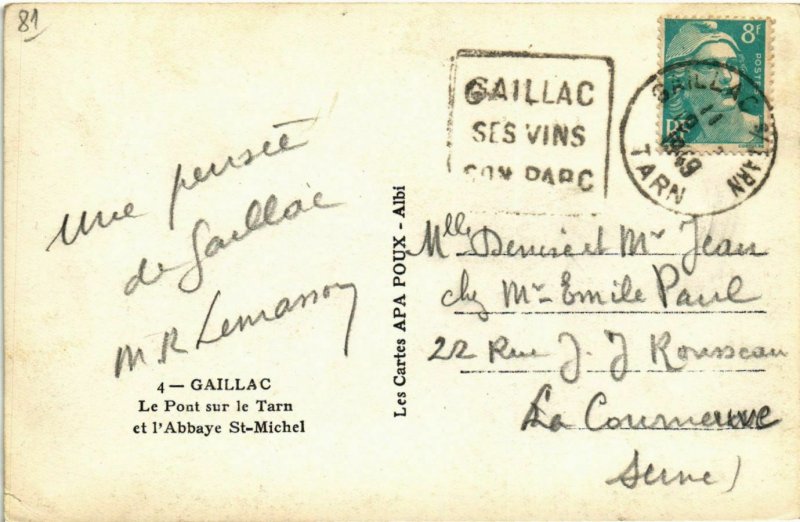 81
8F
POSTES
RF
GAILLAC
SES VINS
SON PARC
GAILLAC
TARN
11
1949
TARN
Une pensée
de Gaillac
M.R Lemasson
4 — GAILLAC
Le Pont sur le Tarn
et l'Abbaye St-Michel
Les Cartes APA POUX - Albi
Mlle Denise et Mr Jean
chez Mr Emile Paul
22 Rue J. J Rousseau
La Courneuve
Seine)